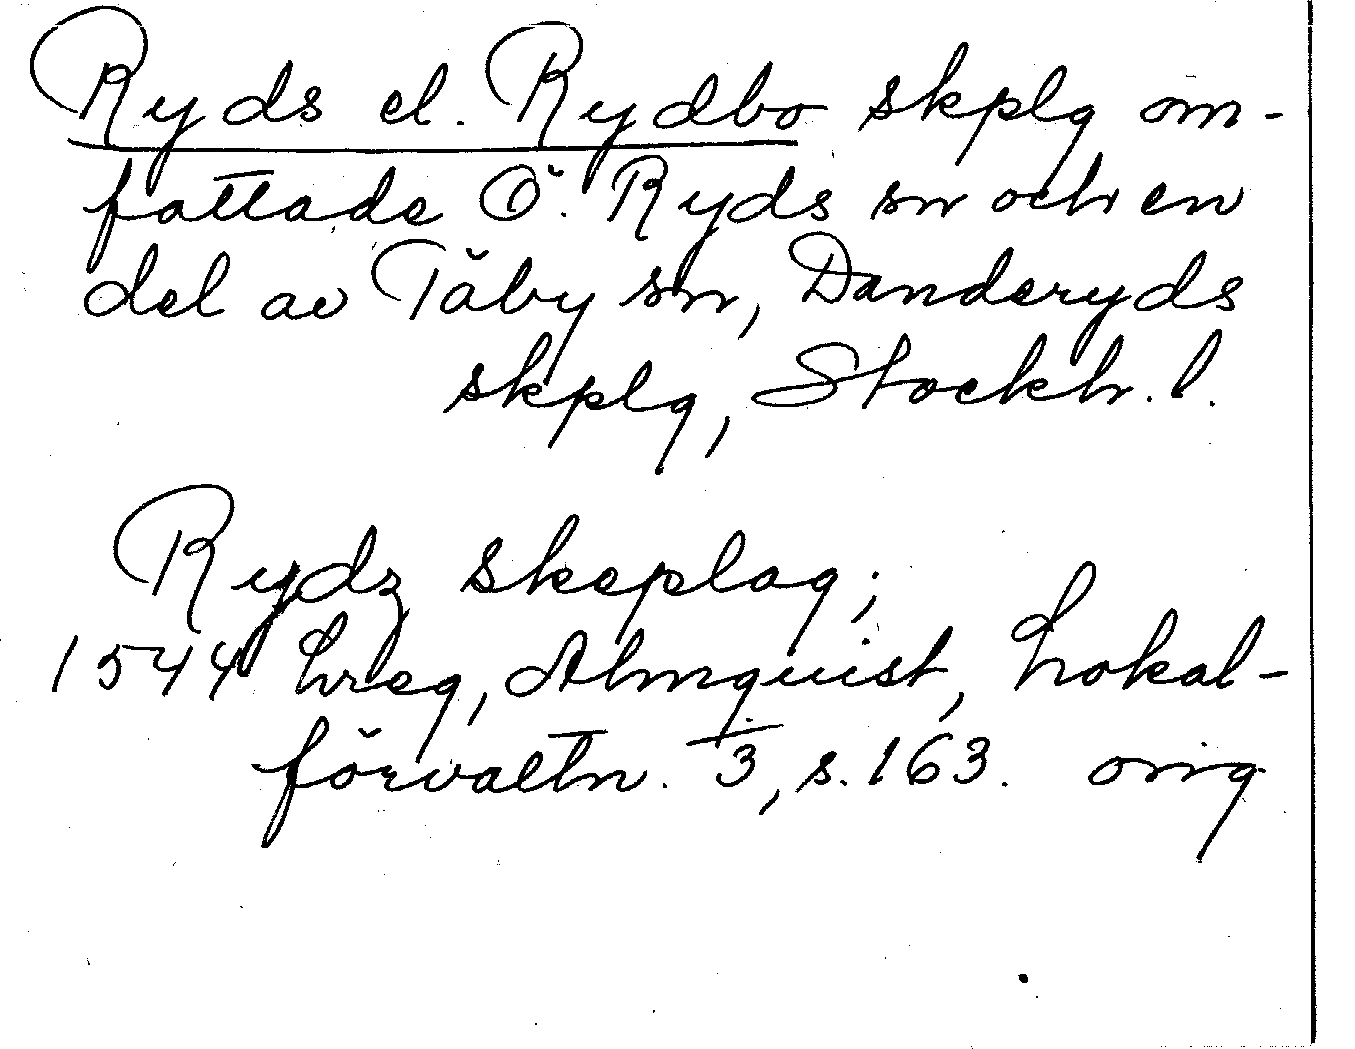 Ryds el. Rydbo skplg om-
fattade Ö. Ryds sn och en
del av Täby sn, Danderyds
skplg, Stockh. l.
Rydz skeplag;
1544 hreg, Almquist, Lokal-
förvaltn. 3, s. 163. orig